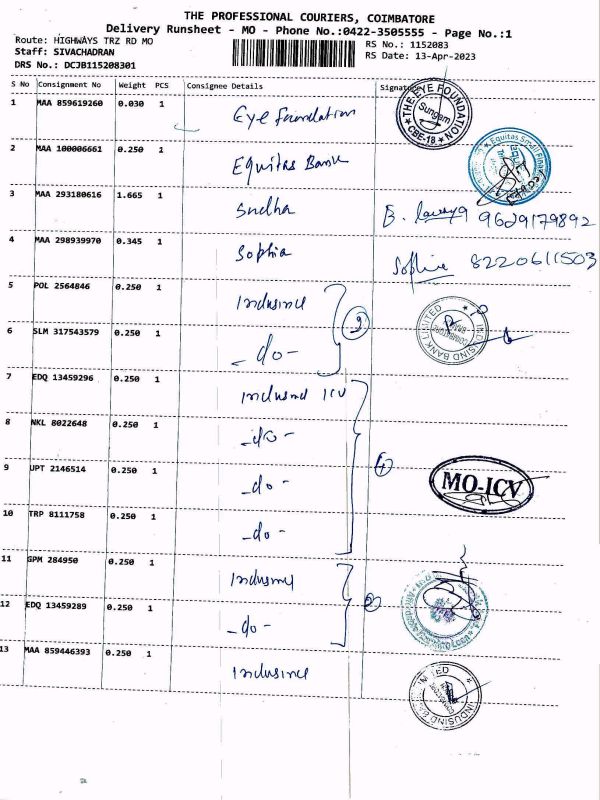 THE PROFESSIONAL COURIERS, COIMBATORE
Delivery Runsheet - MO - Phone No.:0422-3505555 - Page No.:1
Route: HIGHWAYS TRZ RD MO
RS No.: 1152083
Staff: SIVACHADRAN
RS Date: 13-Apr-2023
DRS No.: DCJB115208301
S No Consignment No Weight PCS Consignee Details Signature
1 MAA 859619260 0.030 1 Eye foundation THE EYE FOUNDATION Sungam CBE-18
2 MAA 100006661 0.250 1 Equitas Bank Equitas Small Finance
3 MAA 293180616 1.665 1 Sudha B. 9629179892
4 MAA 298939970 0.345 1 Sophia Sophia 8220611503
5 POL 2564846 0.250 1 Indusind INDUSIND BANK LIMITED
6 SLM 317543579 0.250 1 -do- 2
7 EDQ 13459296 0.250 1 Indusind ICV
8 NKL 8022648 0.250 1 -do-
9 UPT 2146514 0.250 1 -do- 4 MO-ICV
10 TRP 8111758 0.250 1 -do-
11 GPM 284950 0.250 1 Indusind
12 EDQ 13459289 0.250 1 -do- 2
13 MAA 859446393 0.250 1 Indusind INDUSIND BANK LIMITED